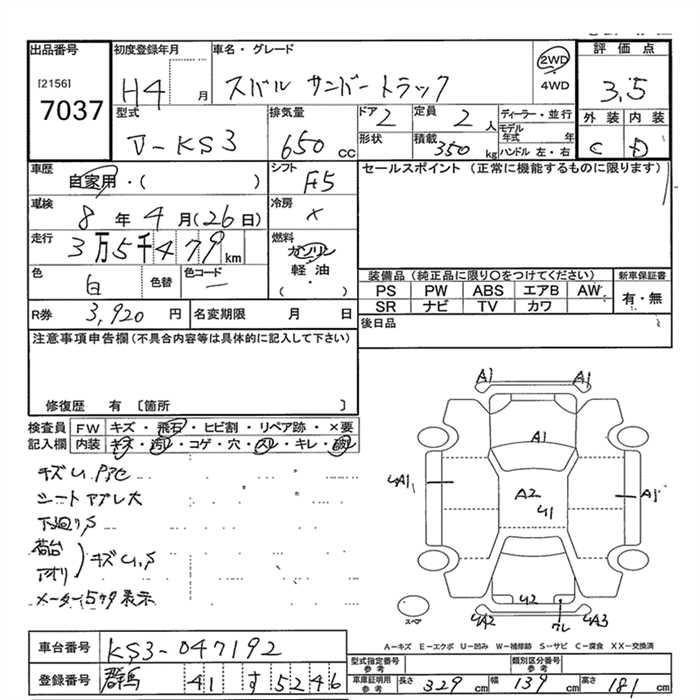 出品番号 初度登録年月 車名・グレード 2WD 評価点
[2156] H4 月 スバル サンバートラック 4WD 3.5
7037
型式 排気量 ドア 定員 ディーラー・並行 外装 内装
V-KS3 650 cc 2 2 人 モデル年式 年 C D
形状 積載 350 kg ハンドル 左・右
車歴 自家用・( ) シフト F5 セールスポイント (正常に機能するものに限ります)
車検 8 年 4 月 (26 日) 冷房 ×
走行 3万5千479 km 燃料 ガソリン
軽油
( ・ )
色 白 色替 色コード ー
装備品 (純正品に限り○をつけてください) 新車保証書
PS PW ABS エアB AW 有・無
SR ナビ TV カワ
R券 3,920 円 名変期限 月 日 後日品
注意事項申告欄 (不具合内容等は具体的に記入して下さい)
修復歴 有 〔箇所 〕
検査員 FW キズ・飛石・ヒビ割・リペア跡・×要
記入欄 内装 キズ・汚レ・コゲ・穴・スレ・キレ・破レ
シートヤブレ大
下廻りS
荷台
アオリ
キズU.S
メーター5ケタ表示
A1 A1
A1
A1
A2
U1
A1
U2
UA2 UA3
スペア
A-キズ E-エクボ U-凹み W-補修跡 S-サビ C-腐食 XX-交換済
車台番号 KS3-047192
登録番号 群馬 41 す 5246
型式指定番号 参考 類別区分番号 参考
車庫証明用 参考 長さ 329 cm 幅 139 cm 高さ 181 cm